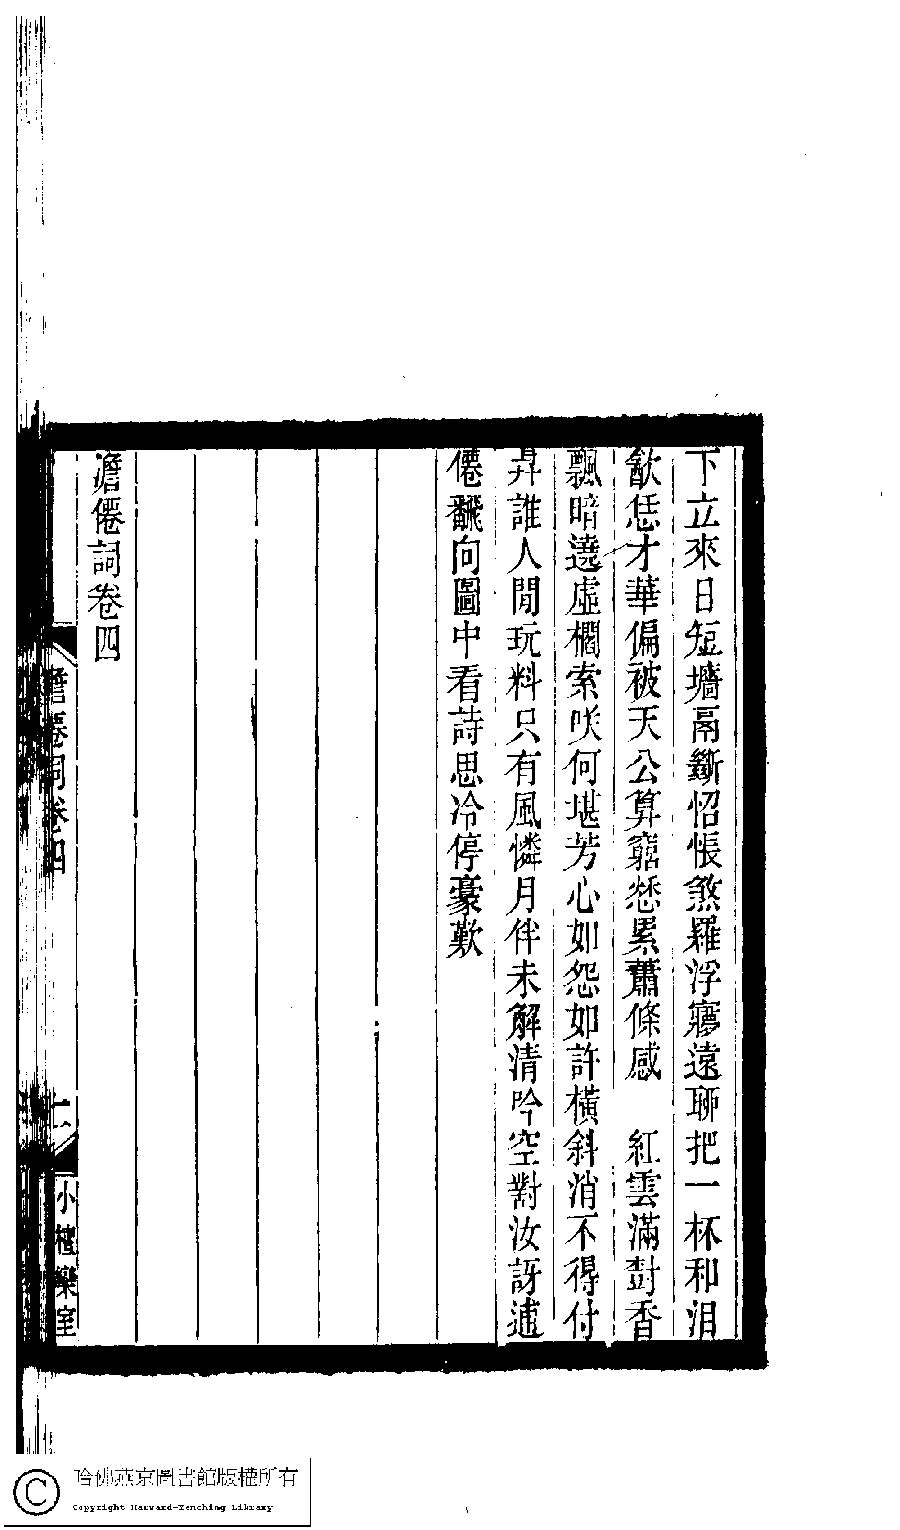 下立來日短墻鬲斷怊悵煞羅浮寥遠聊把一杯和泪
歃恁才華偏被天公算窮愁累蕭條感　紅雲滿尌香
飄暗遶虛櫩索咲何堪芳心如怨如許橫斜消不得付
弄誰人閒玩料只有風憐月伴未解清吟空對汝訝逋
僊飜向圖中看詩思冷停豪歎
澹僊詞卷四
澹僊詞卷四
小檀欒室
哈佛燕京圖書館版權所有
Copyright Harvard-Yenching Library